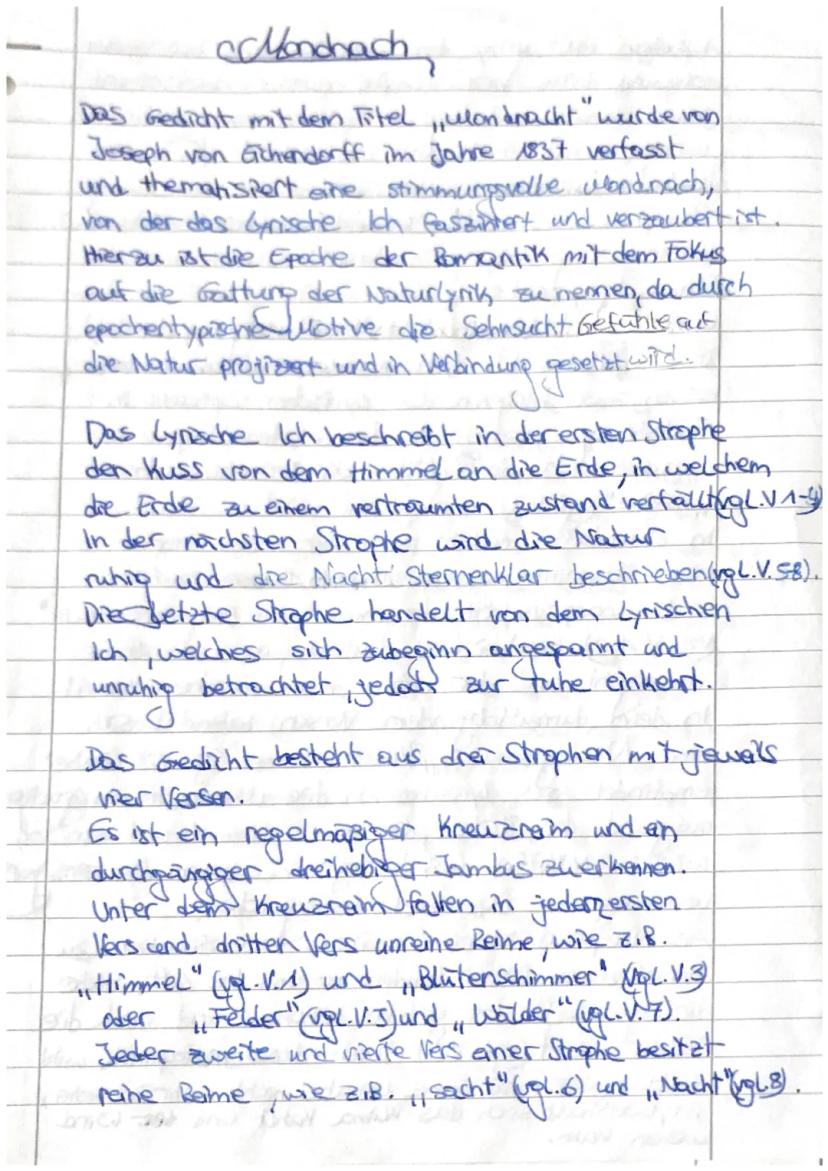 Mondnach
Das Gedicht mit dem Titel „Mondnacht" wurde von
Joseph von Eichendorff im Jahre 1837 verfasst
und thematisiert eine stimmungsvolle Mondnach,
von der das Lyrische Ich fasziniert und verzaubert ist.
Hierzu ist die Epoche der Romantik mit dem Fokus
auf die Gattung der Naturlyrik zu nennen, da durch
epochentypische Motive die Sehnsucht Gefühle auf
die Natur projiziert und in Verbindung gesetzt wird.
Das Lyrische Ich beschreibt in der ersten Strophe
den Kuss von dem Himmel an die Erde, in welchem
die Erde zu einem verträumten zustand verfällt (vgl. V 1-4)
In der nächsten Strophe wird die Natur
ruhig und die Nacht Sternenklar beschrieben (vgl. V. 58).
Die letzte Strophe handelt von dem Lyrischen
Ich, welches sich zubeginn angespannt und
unruhig betrachtet, jedoch zur ruhe einkehrt.
Das Gedicht besteht aus drei Strophen mit jeweils
vier Versen.
Es ist ein regelmäßiger Kreuzreim und ein
durchgängiger dreihebiger Jambus zu erkennen.
Unter dem Kreuzreim fallen in jedem ersten
Vers und dritten Vers unreine Reime, wie z.B.
„Himmel" (vgl. V. 1) und „Blütenschimmer" (vgl. V. 3)
oder „Felder" (vgl. V. 5) und „Wälder" (vgl. V. 7).
Jeder zweite und vierte Vers einer Strophe besitzt
reine Reime, wie z.B. „sacht" (vgl. 6) und „Nacht" (vgl. 8).